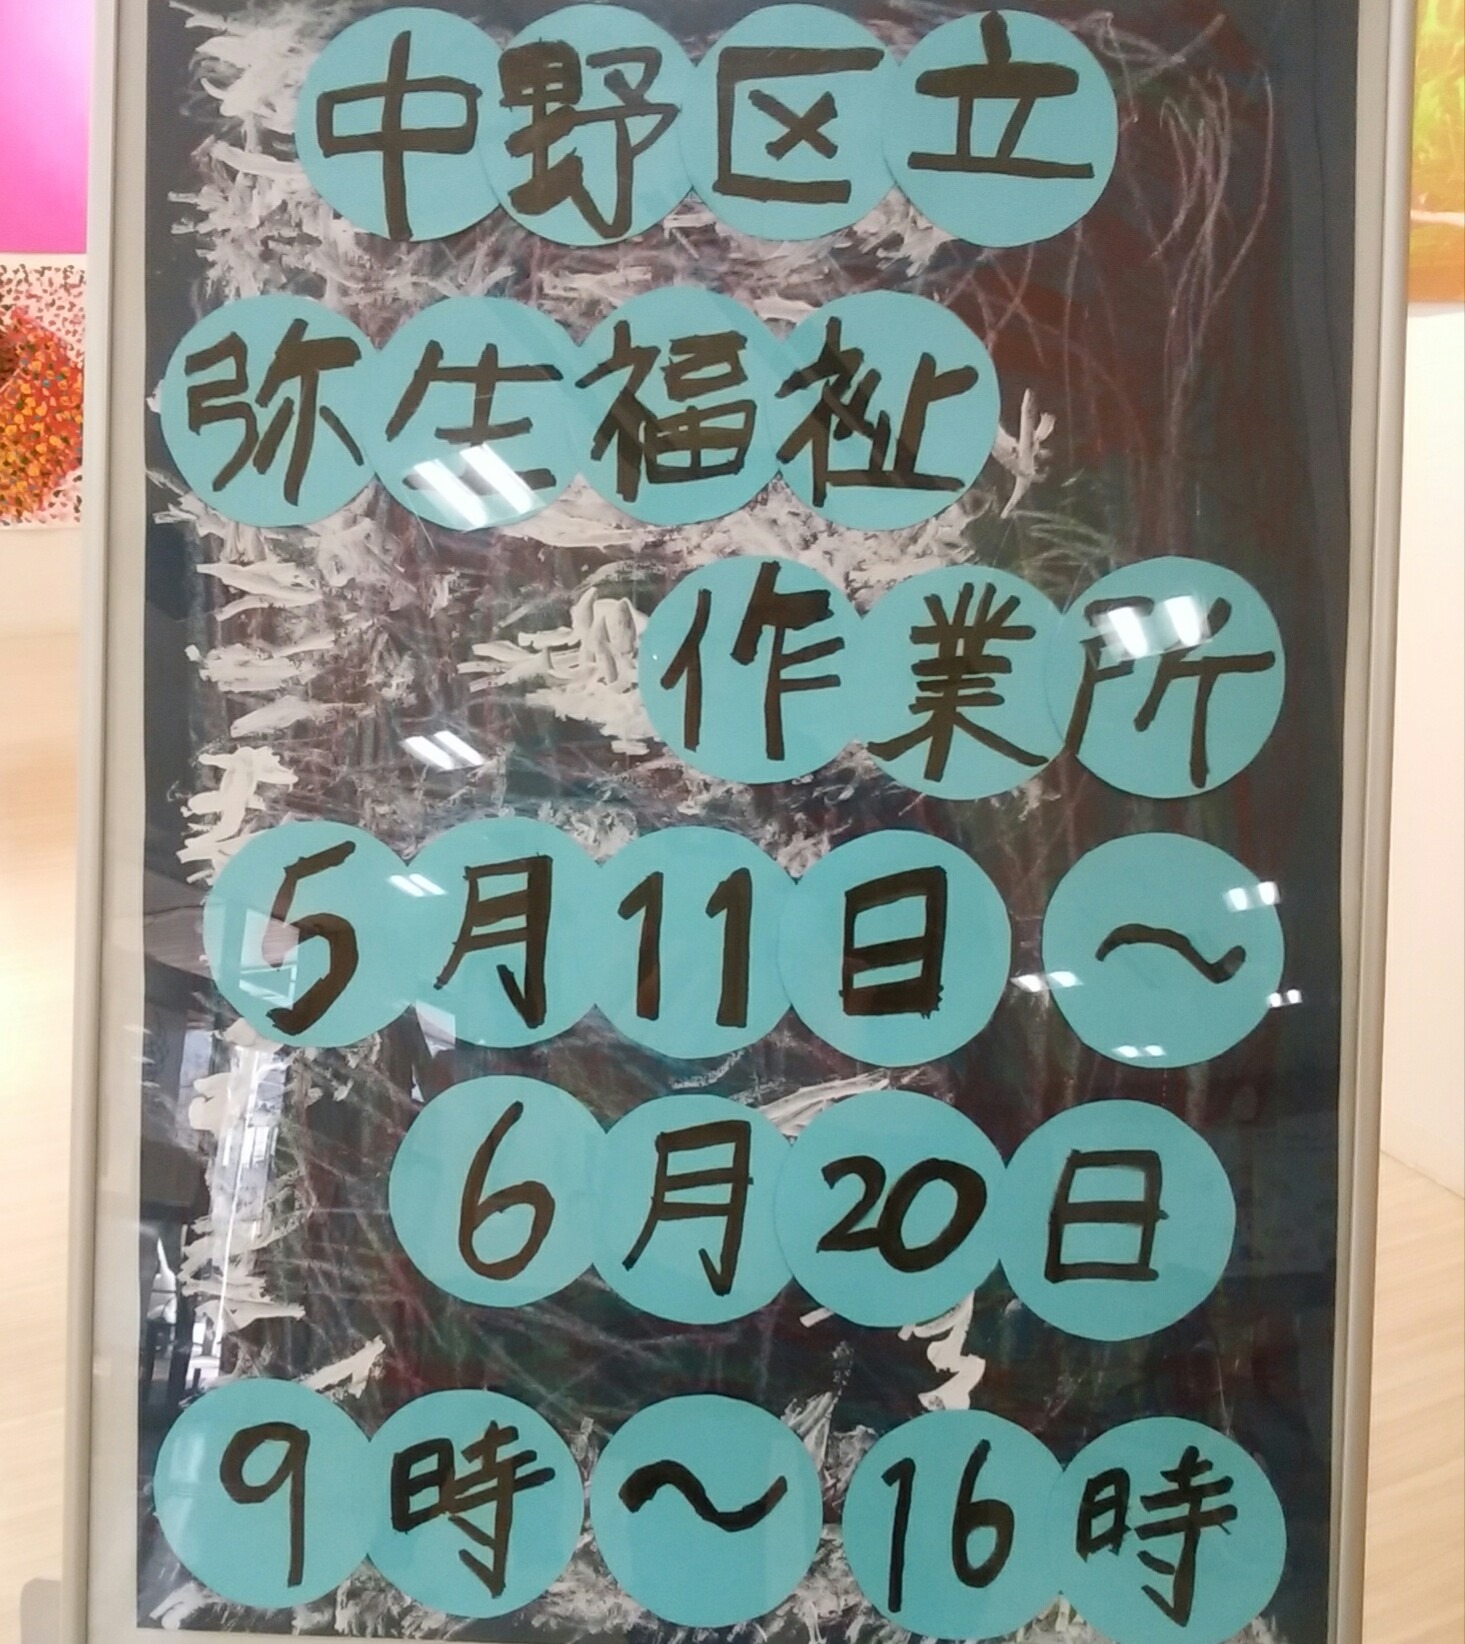 中野区立
弥生福祉
作業所
5月11日～
6月20日
9時～16時